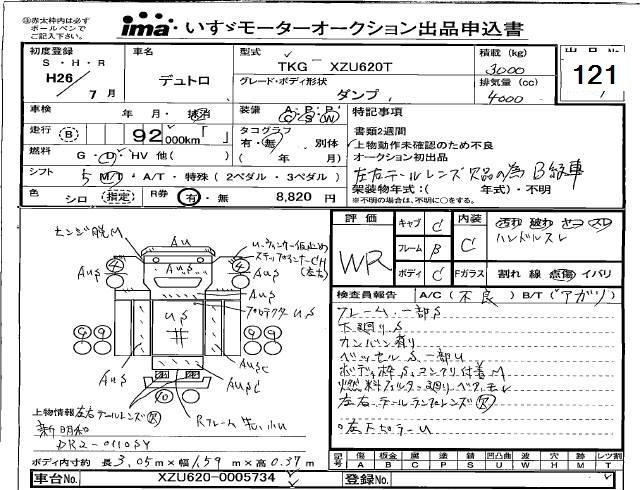 ㊟赤太枠内は必ず
ボールペンで
ご記入下さい。
ima いすゞモーターオークション出品申込書
初度登録
S・H・R
H26
7月
車名
デュトロ
型式
TKG - XZU620T
グレード・ボディ形状
ダンプ
積載(kg)
3000
排気量(cc)
4000
出品No.
121
車検
年 月・抹消
走行 (B) 92,000km「 」
燃料
G・D・HV 他( )
装備 A・P・P
C・S・W
タコグラフ
有・無 別体
( 年 月)
シフト 5 M/T・A/T・特殊(2ペダル・3ペダル)
色 シロ (指定)
R券 有・無 8,820円
特記事項
書類2週間
上物動作未確認のため不良
オークション初出品
左右テールレンズ欠品の為B級車
架装物年式:( 年式)・不明
※不明の場合は、不明に○をする。
評価
WR
キャブ C
フレーム B
ボディ C
内装 C
Fガラス
汚れ 破れ ヤコ スレ
ハンドルスレ
割れ 線 点傷 イバリ
検査員報告 A/C(不良) B/T(アガリ)
フレーム一部S
下廻りS
カンバン有り
ベッセルS一部U
ボディ枠S.コンクリ付着M
燃料フィルター廻りベアモレ
左右テールランプレンズ欠
エンジ脱M
AU
AUS
US
AUSC
プロテクターUS
Rフレーム先
上物情報 左右テールレンズ欠
新明和
DR2-0110SY
ボディ内寸約 長3.05m×幅1.59m×高0.37m
記号
傷 板金 腐 塗 錆 凹凸曲 波 穴 跡 レツ割
A B C P S U W H M T
車台No. XZU620-0005734
登録No.